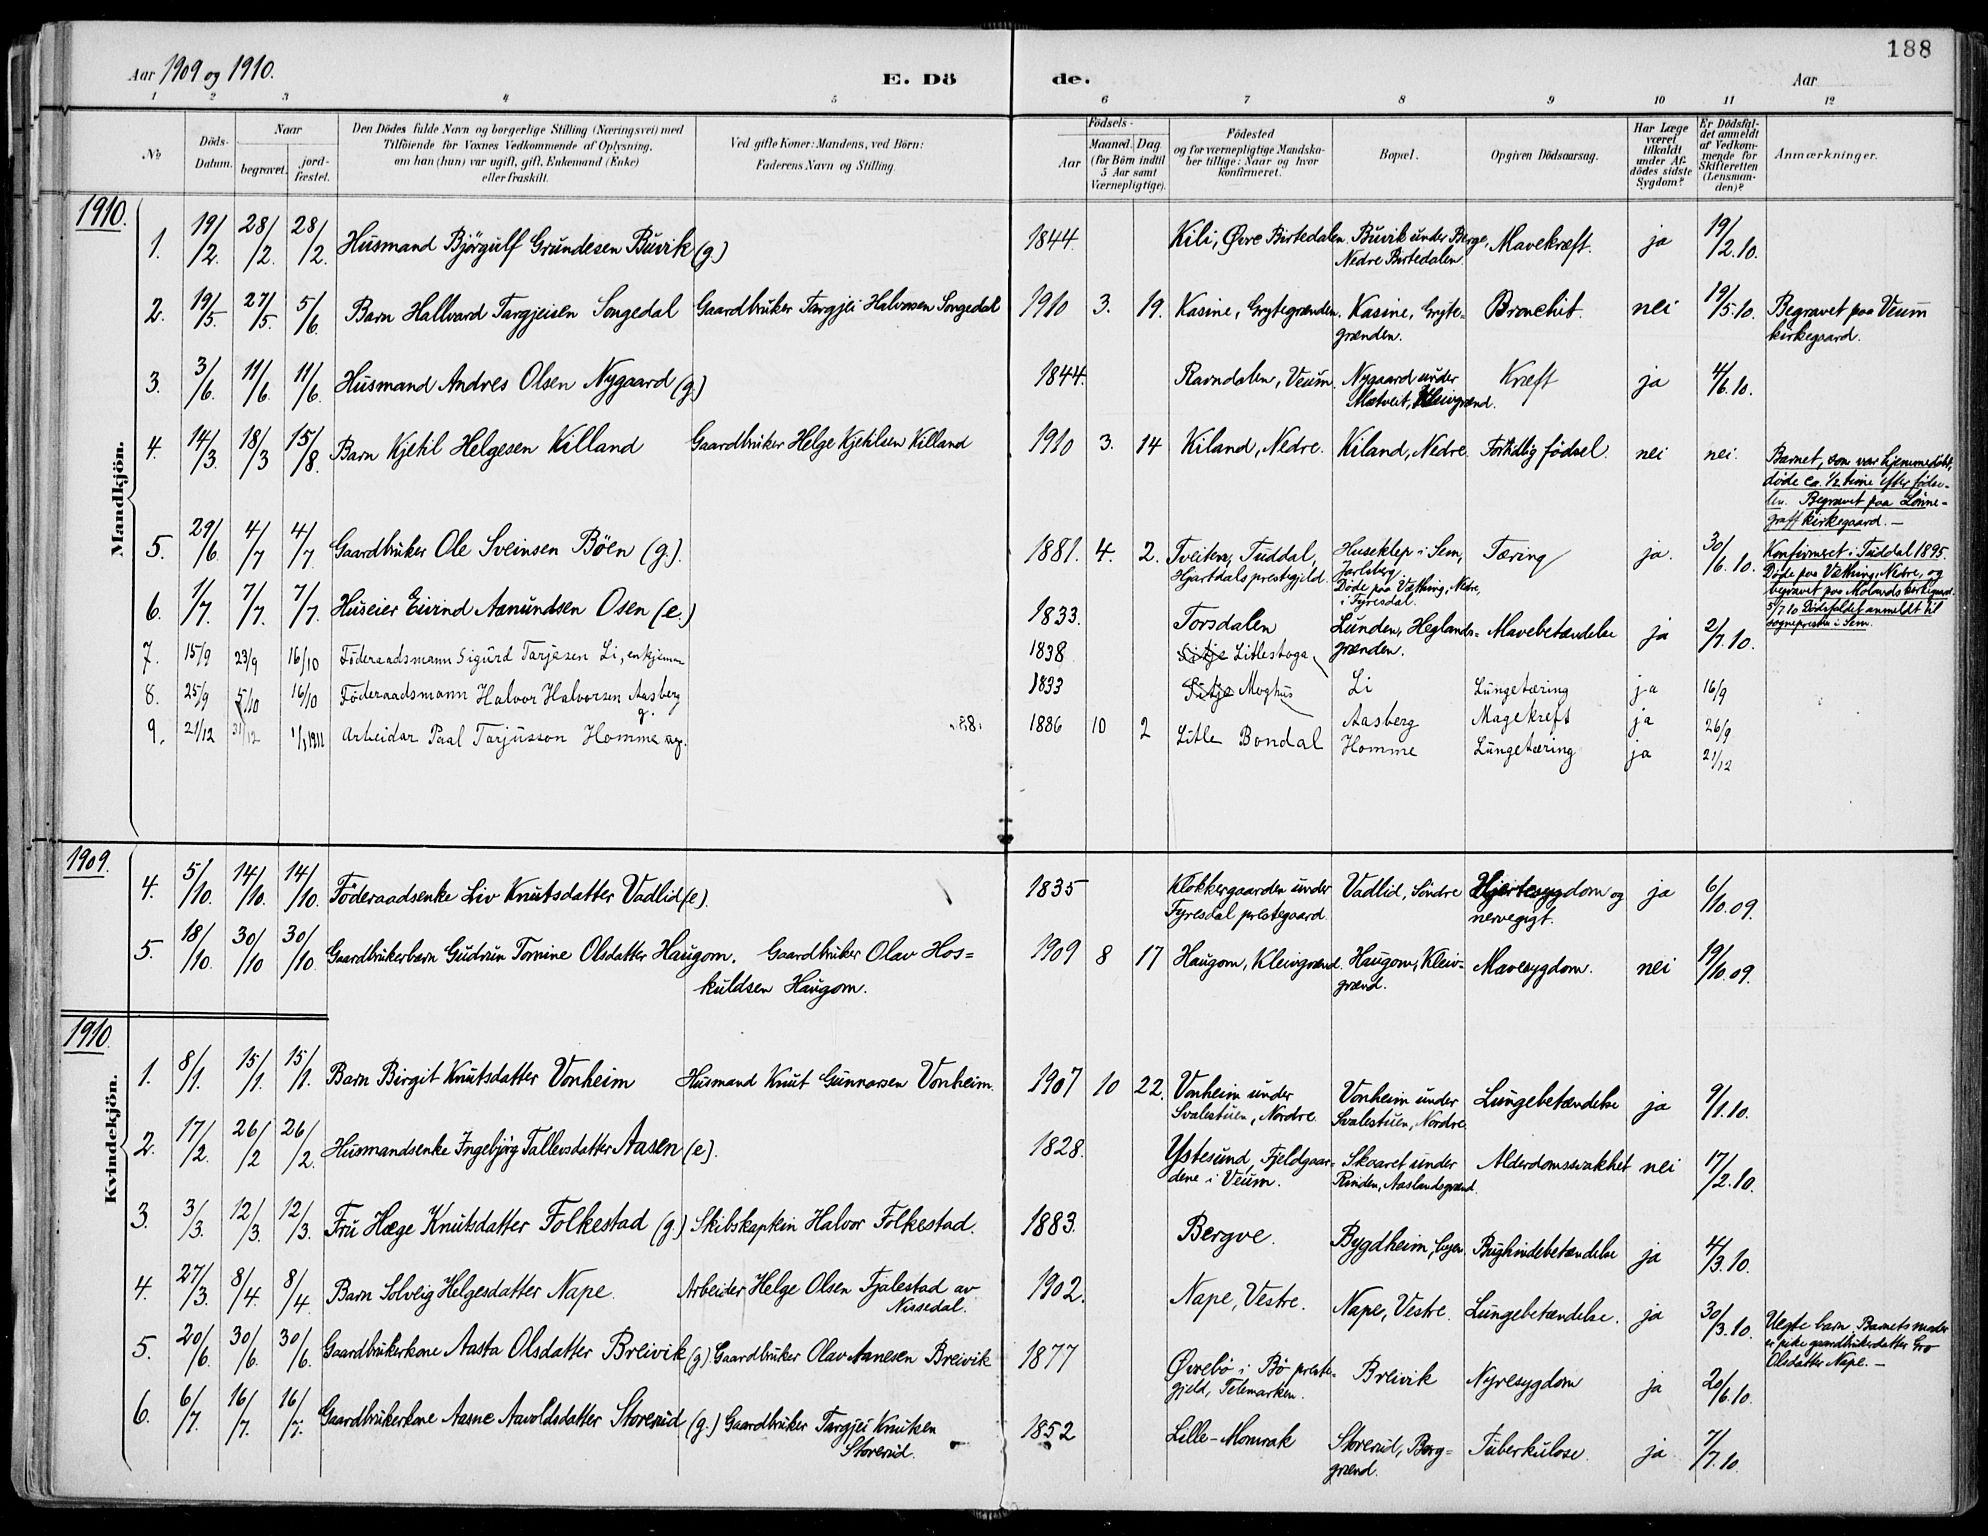 188
Aar 1909 og 1910.
E. Dö de.
Aar
1 2 3 4 5 6 7 8 9 10 11 12
No
Döds-
Datum.
Naar
begravet.
jord-
fæstet.
Den Dödes fulde Navn og borgerlige Stilling (Næringsvei) med
Tilföiende for Voxnes Vedkommende af Oplysning,
om han (hun) var ugift, gift, Enkemand (Enke)
eller fraskilt.
Ved gifte Koner: Mandens, ved Börn:
Faderens Navn og Stilling.
Födsels-
Aar
Maaned. Dag
(for Börn indtil
5 Aar samt
Værnepligtige).
Födested
og for værnepligtige Mandska-
ber tillige: Naar og hvor
konfirmeret.
Bopæl.
Opgiven Dödsaarsag.
Har Læge
været
tilkaldt
under Af-
dödes sidste
Sygdom?
Er Dödsfal-
det anmeldt
af Vedkom-
mende for
Skifteretten
(Lensman-
den)?
Anmærkninger.
Mandkjön.
1910.
1. 19/2. 28/2. 28/2. Husmand Bjørgulf Grundesen Buvik (g.) 1844. Kili, Øvre Birtedalen. Buvik under Berge, Mavekræft. ja 19/2.10.
Nedre Birtedalen.
2. 19/5. 27/5. 5/6. Barn Hallvard Targjeisen Songedal Gaardbruker Targjei Halvorsen Songedal 1910 3. 19. Kasine, Grytegrænden. Kasine, Gryte- Bronchit. nei 19/5.10. Begravet paa Veum
grænden. kirkegaard.
3. 3/6. 11/6. 11/6. Husmand Andres Olsen Nygaard (g.) 1844. Ravndalen, Veum. Nygaard under Kræft ja 4/6.10.
4. 14/3. 18/3 15/8. Barn Kjetil Helgesen Killand Gaardbruker Helge Kjetilsen Killand 1910 3. 14 Kiland, Nedre. Kiland, Nedre. Fortidlig fødsel. nei nei.
Barnet, som var hjemmedøbt,
døde ca. 1/2 time efter fødse-
len. Begravet paa Lønne-
graff kirkegaard. —
5. 29/6 4/7 4/7. Gaardbruker Ole Sveinsen Bøen (g.). 1881. 4. 2. Tveiten, Tuddal, Huseklep i Sem, Tæring ja. 30/6.10. Konfirmert i Tuddal 1895.
Hjartdals prestegjeld. Jarlsberg. Døde paa Vætting, Nedre, og
Døde paa Vætting, Nedre, begravet paa Molands kirkegaard
i Fyresdal. 5/7.10 Dødsfaldet anmeldt til
sogneprest i Sem.
6. 1/7. 7/7. 7/7. Huseier Eivind Aamundsen Osen (e.) 1833. Torsdalen Lunden, Heglands- Mavebetændelse ja 2/7.10.
grænden.
7. 15/9 23/9 16/10 Föderaadsmann Sigurd Tarjesen Li, enkjemann 1838 Litlestoga Li Lungetæring ja 16/9
8. 25/9 5/10 16/10 Föderaadsmann Halvor Halvorsen Aasberg g. 1833 Moghus Aasberg Magekreft ja 26/9
9. 21/12 31/12 1/1 1911 Arbeidar Paal Tarjusson Homme ug. 1886 10 2 Litle Bondal Homme Lungetæring ja 21/12
Kvindekjön.
1909.
4. 5/10. 14/10. 14/10. Föderaadsenke Liv Knutsdatter Vadlid (e). 1835 Klokkergaarden under Vadlid, Søndre Hjertesygdom og ja 6/10.09.
Fyresdal prestegaard. nervegigt.
5. 18/10. 30/10 30/10. Gaardbrukerbarn Gudrun Tomine Olsdatter Haugom. Gaardbruker Olav Hos- 1909 8 17 Haugom, Kleivgrænd. Haugom, Kleiv- Mavesygdom. nei 19/10.09.
kuldsen Haugom. grænd.
1910.
1. 8/1. 15/1. 15/1. Barn Birgit Knutsdatter Vonheim Husmand Knut Gunnarsen Vonheim. 1907 10 22. Vonheim under Vonheim under Lungebetændelse ja 9/1.10.
Svalestuen, Nordre. Svalestuen, Nordre.
2. 17/2. 26/2 26/2. Husmandsenke Ingebjørg Tallevsdatter Aasen (e). 1828. Ystesund, Fjeldgaar- Skaaret under Alderdomssvakhet nei 17/2.10.
dene i Veum. Rinden, Aaslandsgrænd.
3. 3/3. 12/3. 12/3. Fru Hæge Knutsdatter Folkestad (g.) Skibskaptein Halvor Folkestad. 1883. Bergve. Bygdheim, Bughindebetændelse ja 4/3.10.
4. 27/3. 8/4. 8/4 Barn Solveig Helgesdatter Nape. Arbeider Helge Olsen Fjalestad av 1902. Nape, Vestre. Nape, Vestre. Lungebetændelse. ja 30/3.10. Uegte barn. Barnets moder
Nissedal. er pike gaardbrukerdatter Gro
Olsdatter Nape. —
5. 20/6. 30/6. 30/6. Gaardbrukerkone Aasta Olsdatter Breivik (g). Gaardbruker Olav Aanesen Breivik 1877 Øvrebø i Bø preste- Breivik Nyresygdom ja 20/6.10.
gjeld, Telemarken.
6. 6/7. 16/7. 16/7. Gaardbrukerkone Aasne Aavoldsdatter Storerud (g.) Gaardbruker Targjei Knutsen 1852 Lille-Momrak Storerud, Borg- Tuberkulose. ja 7/7.10.
Storerud. grænd.